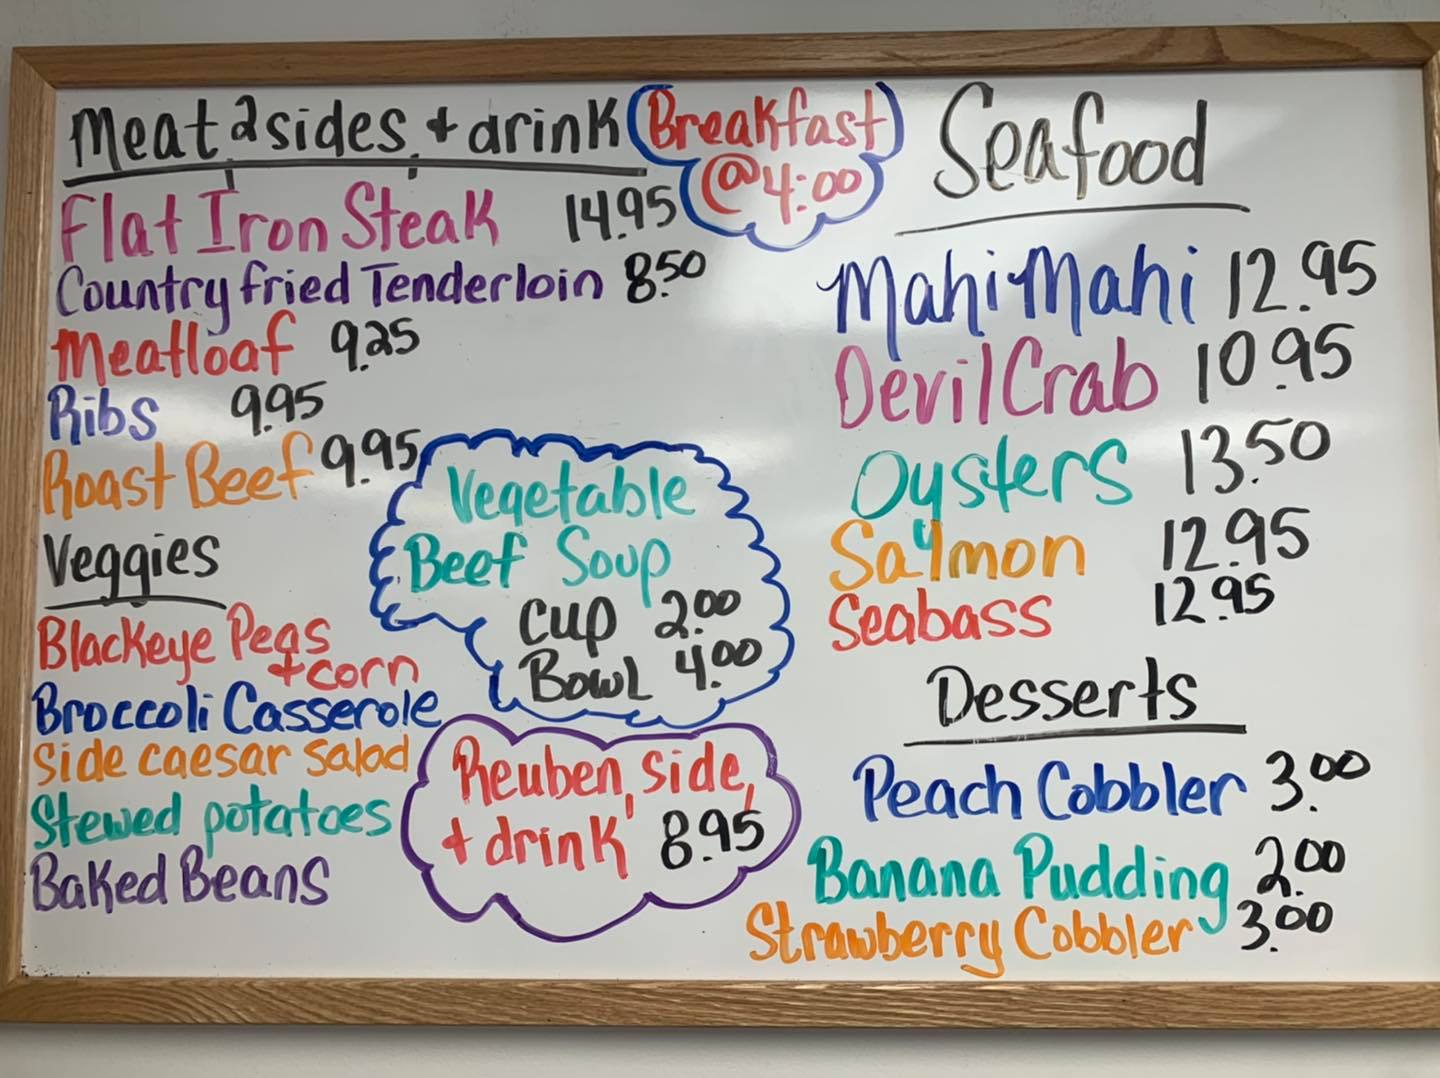 Meat, 2 sides, + drink
Flat Iron Steak 14.95
Country fried Tenderloin 8.50
Meatloaf 9.25
Ribs 9.95
Roast Beef 9.95
Veggies
Blackeye Peas
+ corn
Broccoli Casserole
Side caesar salad
Stewed potatoes
Baked Beans
Breakfast
@ 4:00
Vegetable
Beef Soup
Cup 2.00
Bowl 4.00
Reuben, side,
+ drink 8.95
Seafood
Mahi Mahi 12.95
Devil Crab 10.95
Oysters 13.50
Salmon 12.95
Seabass 12.95
Desserts
Peach Cobbler 3.00
Banana Pudding 2.00
Strawberry Cobbler 3.00